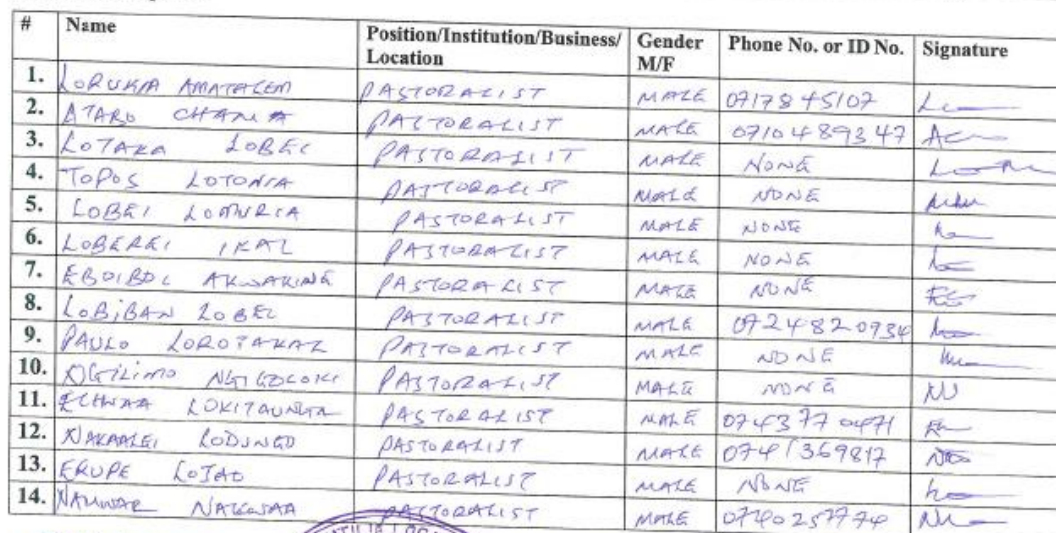 # Name Position/Institution/Business/Location Gender M/F Phone No. or ID No. Signature
1. LORUKIA AMATALEM PASTORALIST MALE 0717845107
2. ATARO CHANA PASTORALIST MALE 0710489347
3. LOTARA LOBEL PASTORALIST MALE NONE
4. TOPOS LOTONIA PASTORALIST MALE NONE
5. LOBEI LOMURIA PASTORALIST MALE NONE
6. LOBEREI IKAL PASTORALIST MALE NONE
7. EBOIBOL AKWAKING PASTORALIST MALE NONE
8. LOBIBAN LOBEL PASTORALIST MALE 0724820934
9. PAULO LOROTAKAL PASTORALIST MALE NONE
10. NGILIMO PASTORALIST MALE NONE
11. PASTORALIST MALE 0743770471
12. NAKAALEI PASTORALIST MALE 0741369817
13. ERUPE LOTAO PASTORALIST MALE NONE
14. NAKWAA PASTORALIST MALE 0740257774